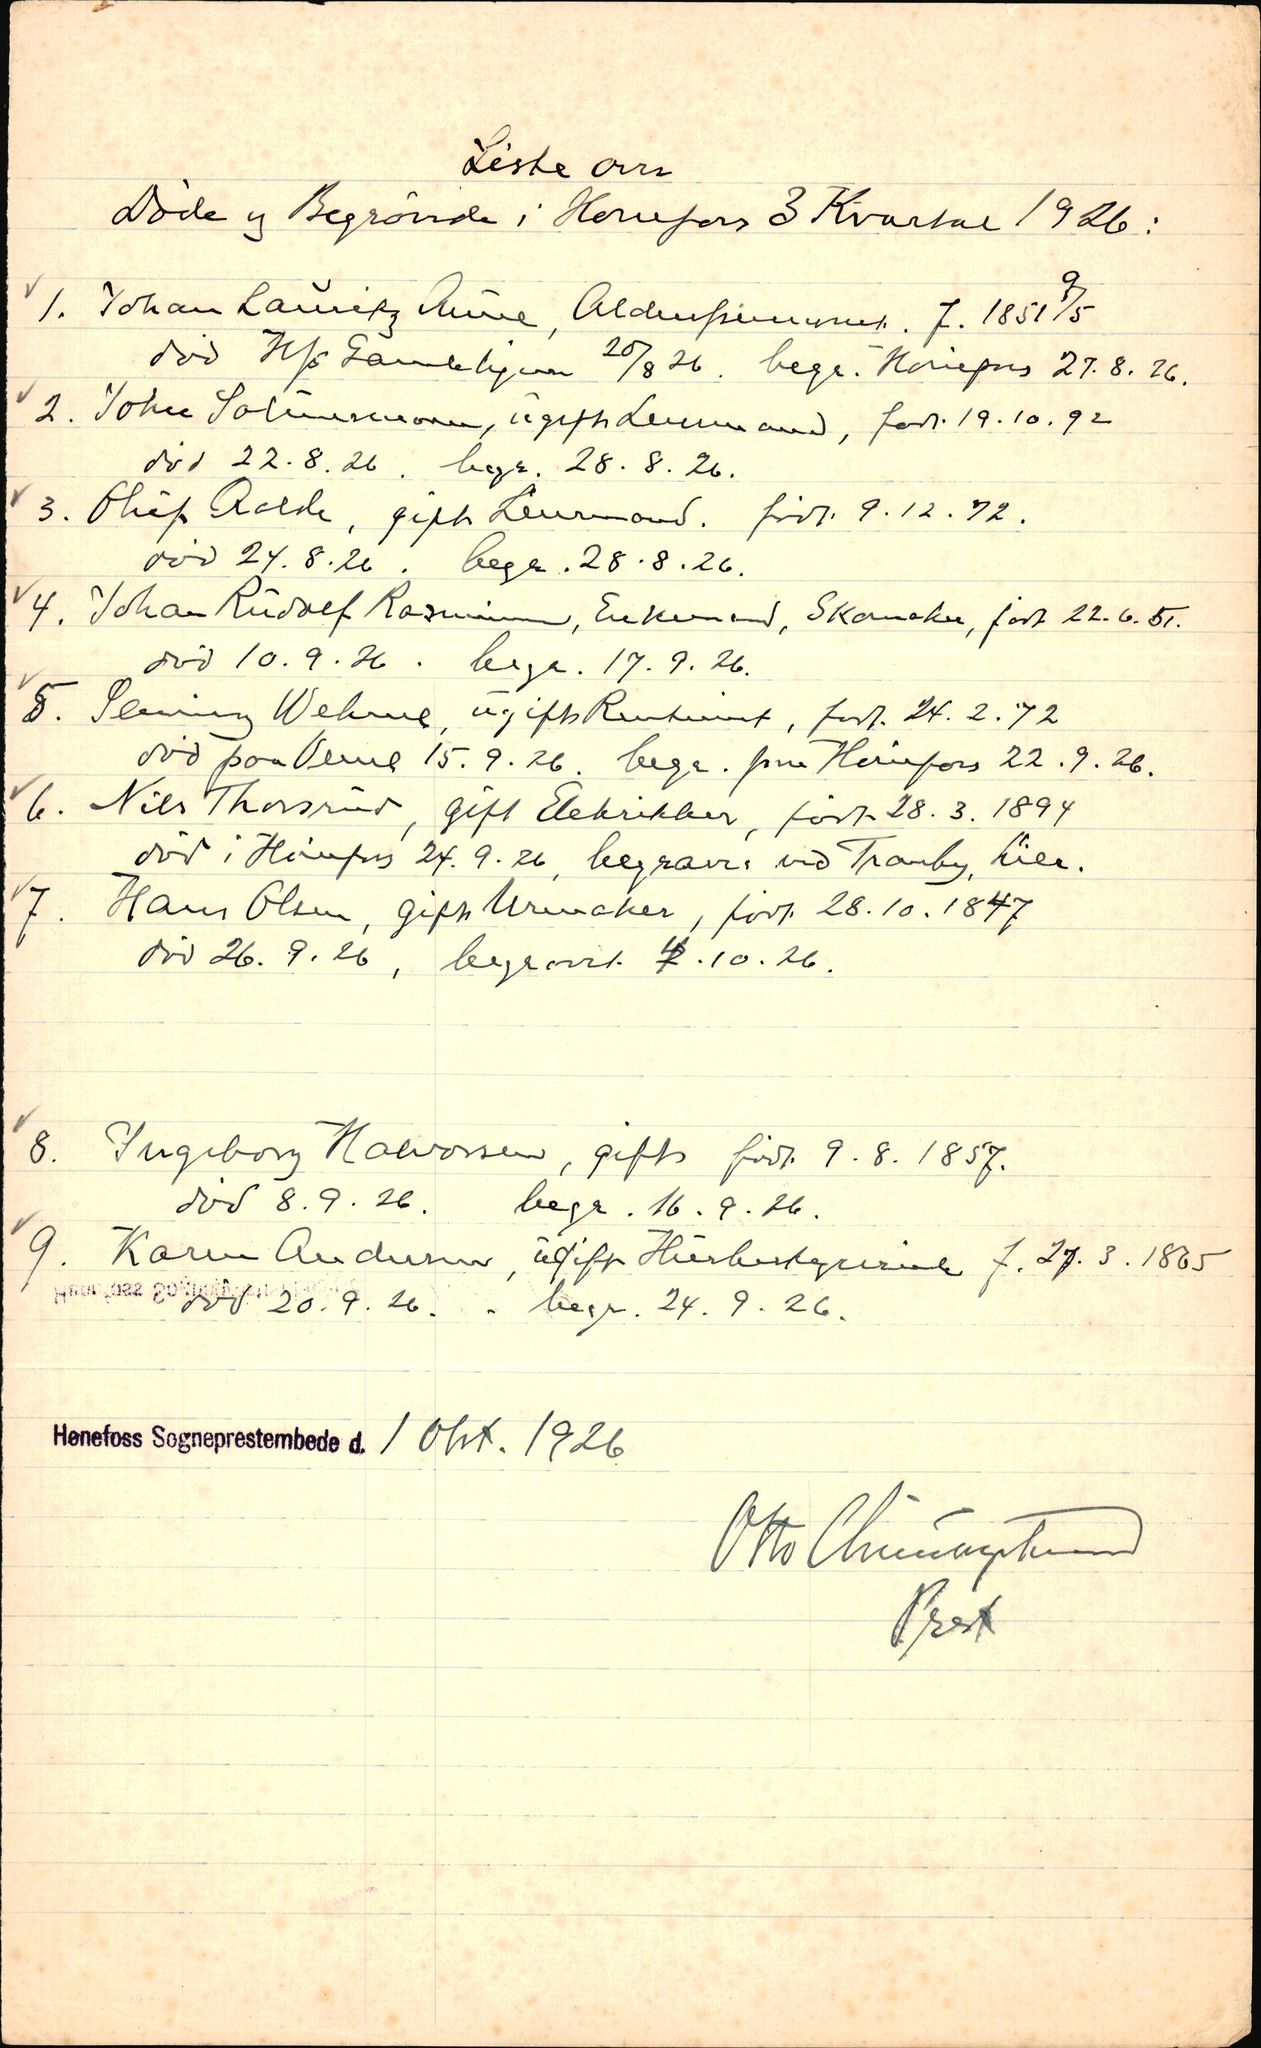 Liste over
Døde og Begravede i Hønefoss 3 Kvartal 1926:
1. Johan Lauritz Aune, f. 1851 9/5
død Hfs Gamlehjem 20/8 26. begr. Hønefoss 27.8.26.
2. John ugift Leiermand, født 19.10.92
død 22.8.26. begr. 28.8.26.
3. Oluf gift Leiermand. født 9.12.72.
død 24.8.26. begr. 28.8.26.
4. Johan Rudolf Rasmussen, Enkemand, Skomaker, født 22.6.51.
død 10.9.26. begr. 17.9.26.
5. ugift født 24.2.72
død paa 15.9.26. begr. fra Hønefoss 22.9.26.
6. Nils Thorsrud, gift Elektriker, født 28.3.1894
død i Hønefoss 24.9.26, begravet ved Tranby, Lier.
7. Hans Olsen, gift Urmaker, født 28.10.1847
død 26.9.26, begravet 4.10.26.
8. Ingeborg Halvorsen, gift født 9.8.1857.
død 8.9.26. begr. 16.9.26.
9. Karen Andersen, ugift f. 27.3.1865
død 20.9.26. begr. 24.9.26.
Hønefoss Sogneprestembede d. 1 Okt. 1926
Otto
Prest